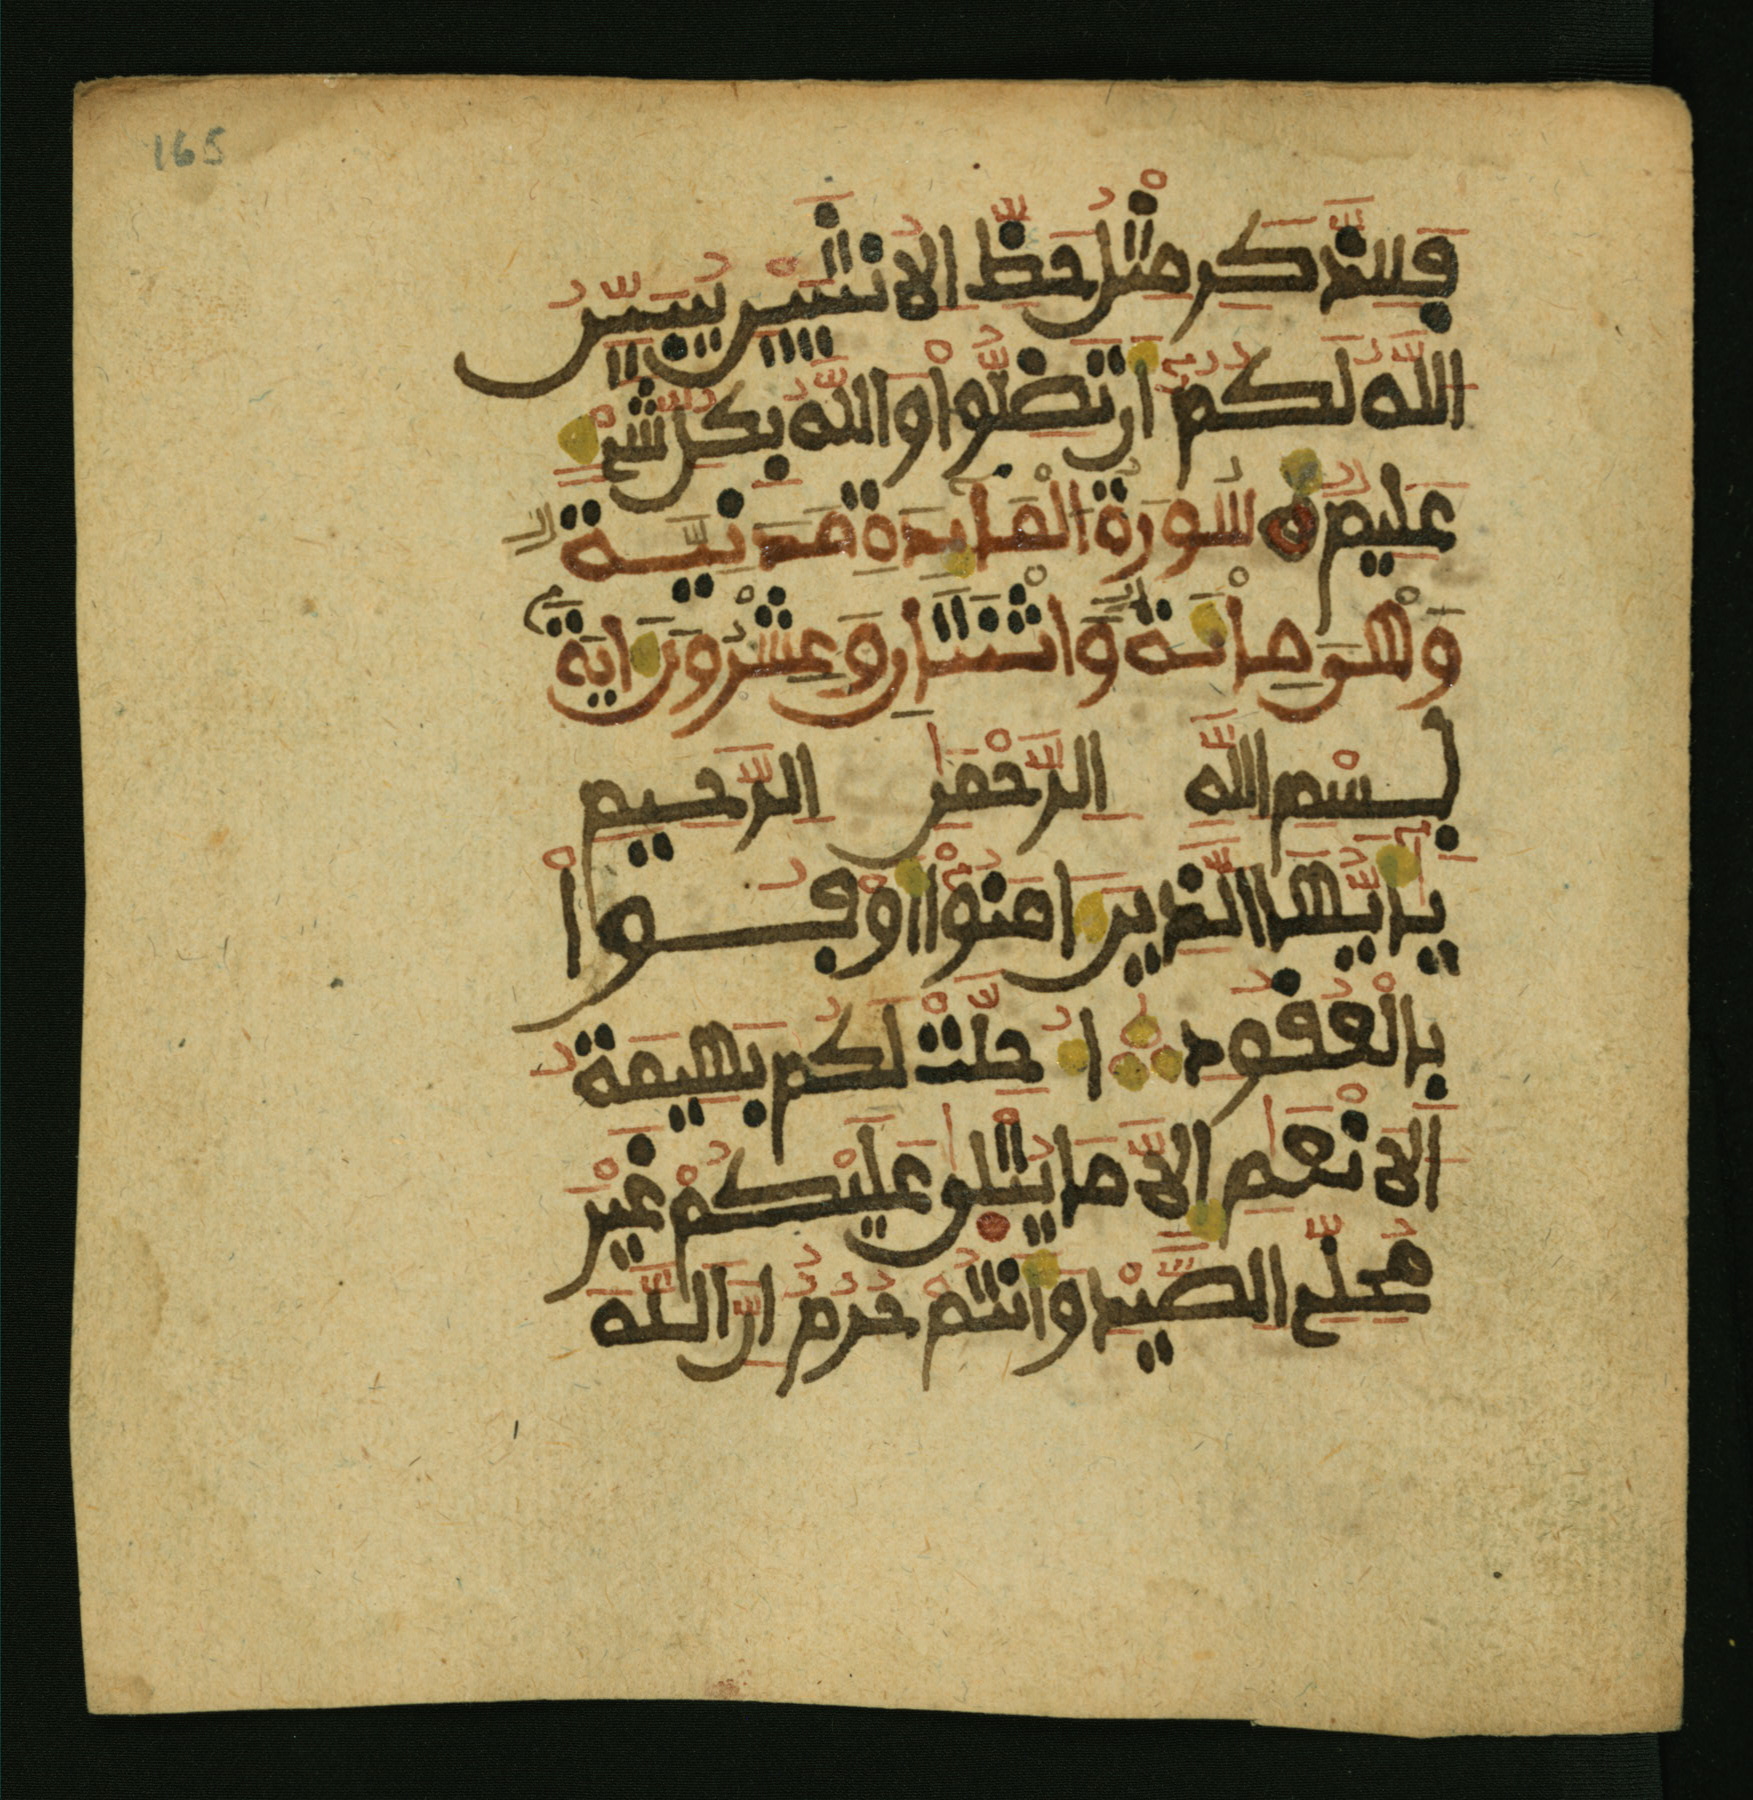 165
فَلِلذَّكَرِ مِثْلُ حَظِّ الاُنثَيَيْنِ يُبَيِّنُ
اللَّهُ لَكُمُ أَن تَضِلُّواْ وَاللَّهُ بِكُلِّ شَيْءٍ
عَلِيمٌ سُورَةُ الْمَائِدَةِ مَدَنِيَّةٌ
وَهْىَ مِائَةٌ وَاثْنَتَانِ وَعِشْرُونَ ايَةً
بِسْمِ اللَّهِ الرَّحْمَٰنِ الرَّحِيمِ
يَٰأَيُّهَا الَّذِينَ ءَامَنُواْ أَوْفُواْ
بِالْعُقُودِ أُحِلَّتْ لَكُم بَهِيمَةُ
الاَنْعَٰمِ إِلاَّ مَا يُتْلَىٰ عَلَيْكُمْ غَيْرَ
مُحِلِّي الصَّيْدِ وَأَنتُمْ حُرُمٌ إِنَّ اللَّهَ